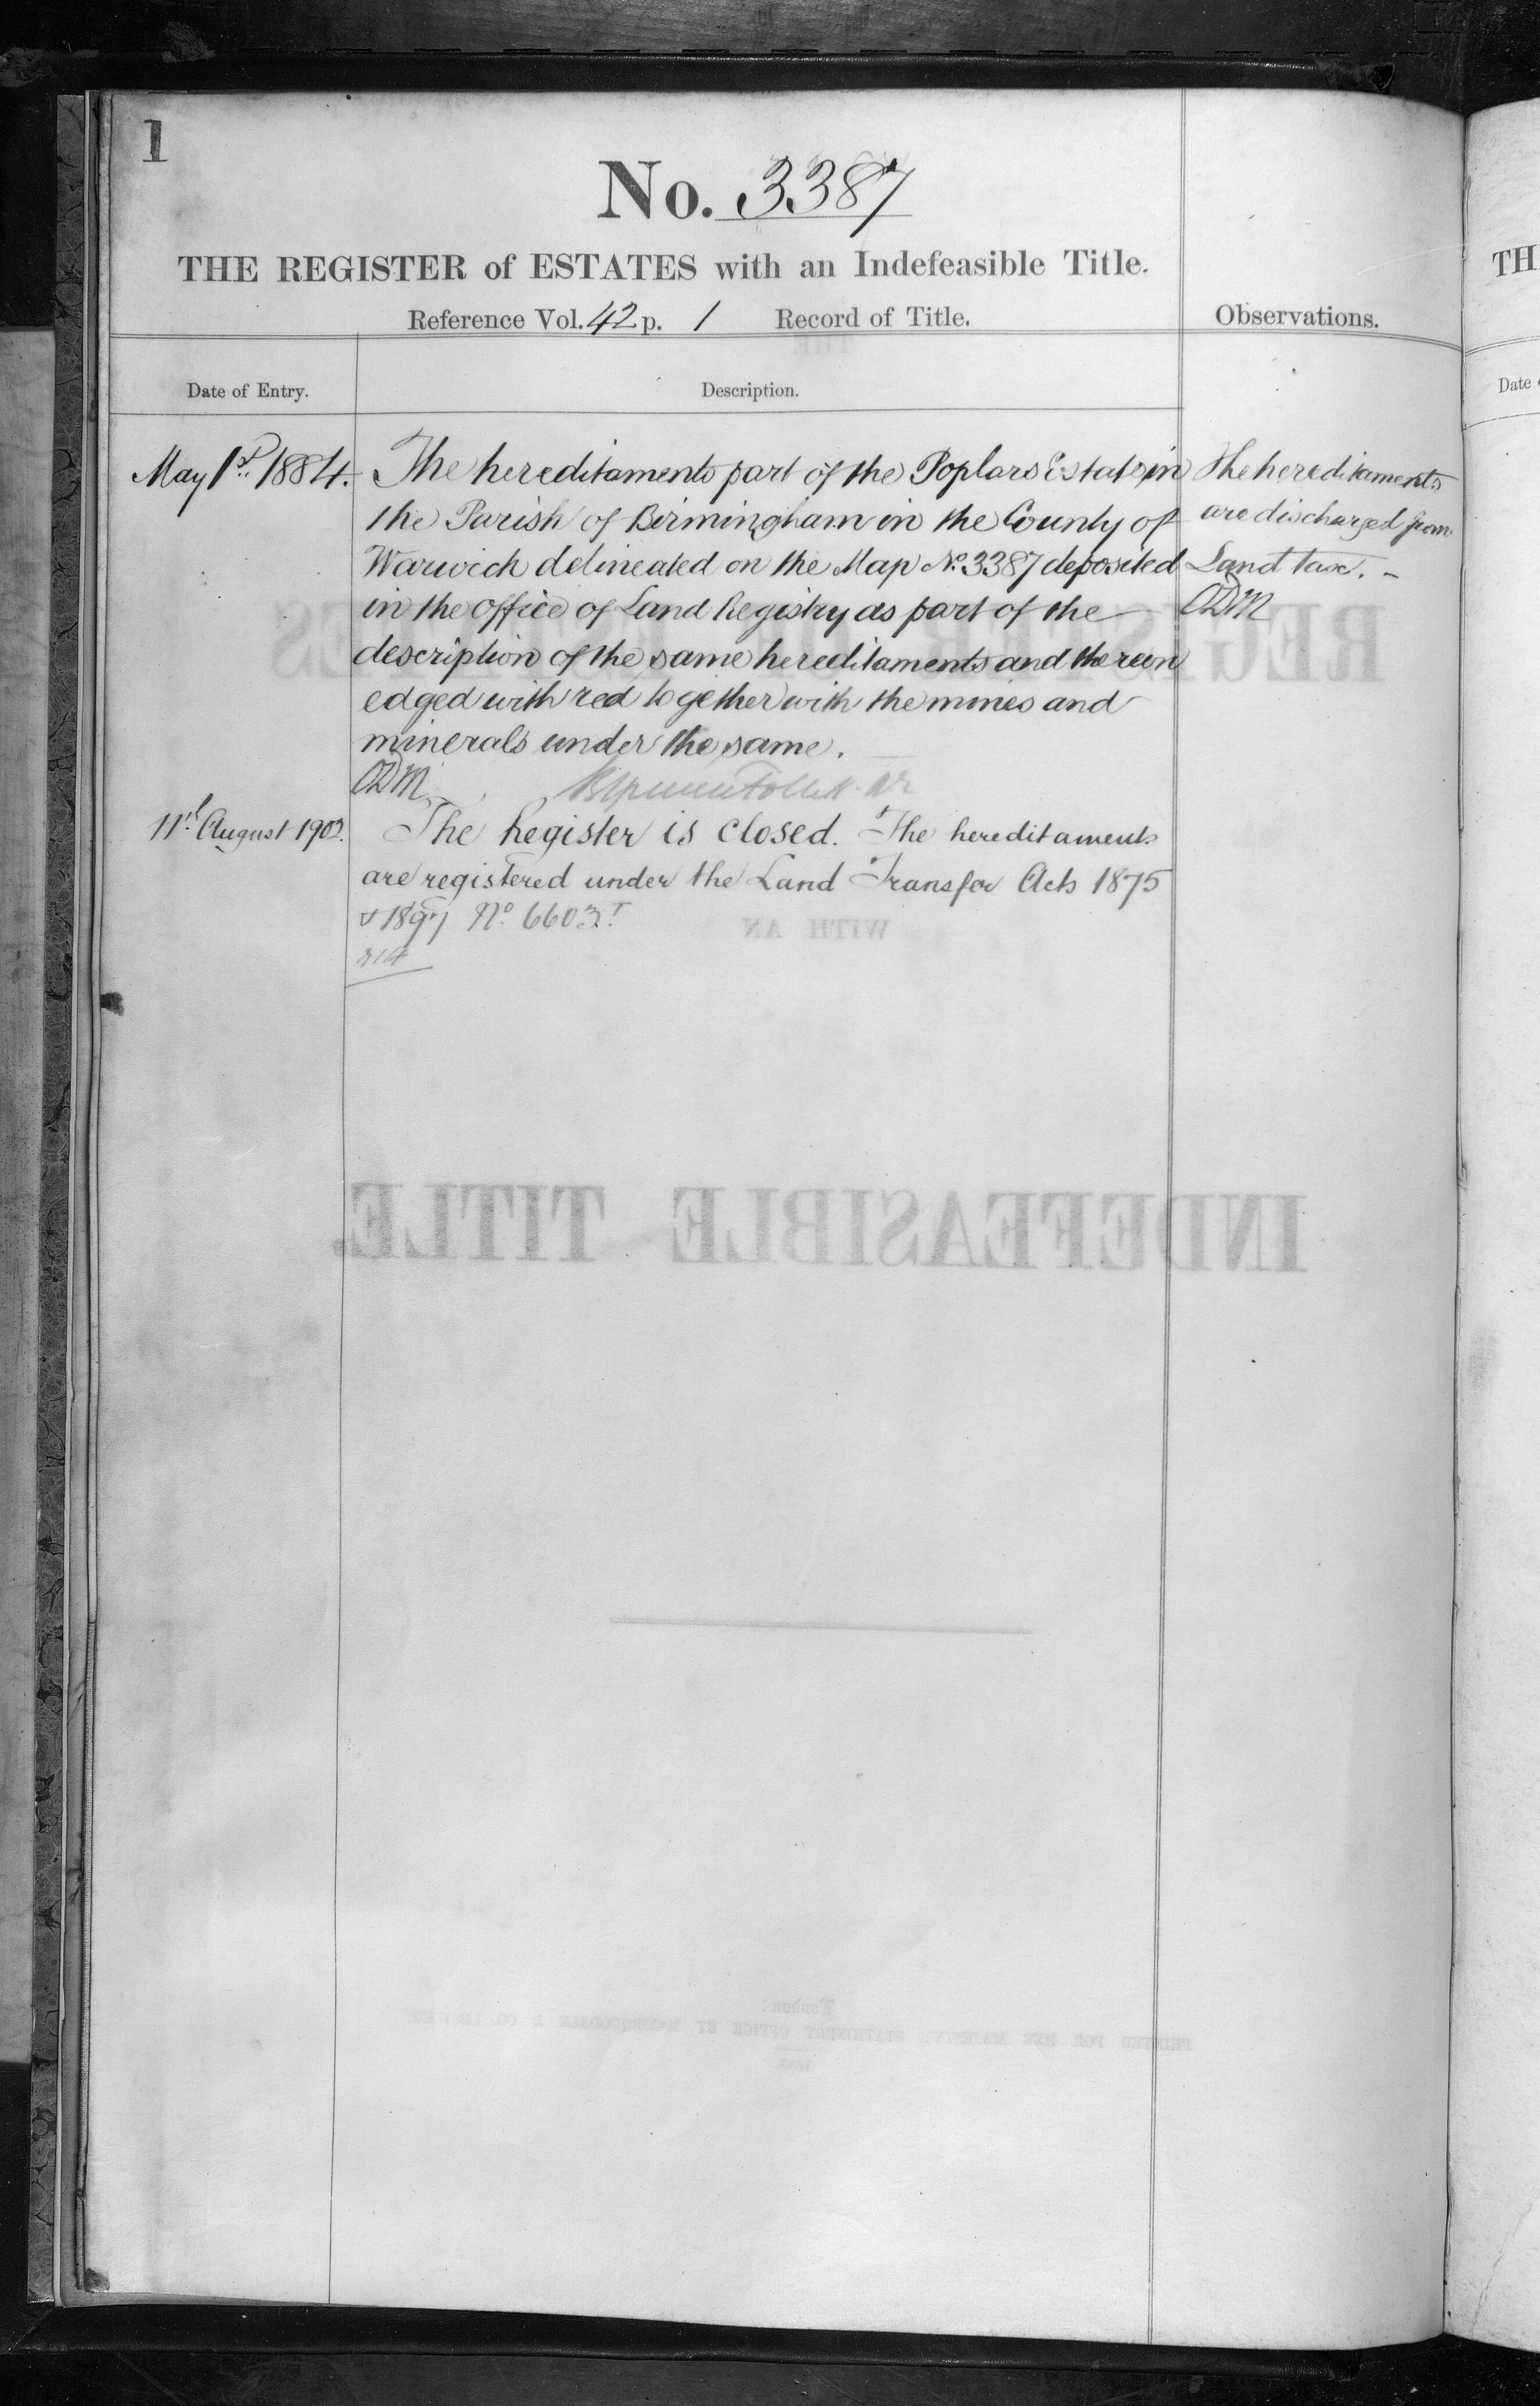 1
No. 3387
THE REGISTER of ESTATES with an Indefeasible Title.
Reference Vol. 42 p. 1 Record of Title.
Observations.
Date of Entry.
Description.
May 1st 1884.
The hereditaments part of the Poplars Estate in
the Parish of Birmingham in the County of
Warwick delineated on the Map No. 3387 deposited
in the office of Land Registry as part of the
description of the same hereditaments and thereon
edged with red together with the mines and
minerals under the same.
The hereditaments
are discharged from
Land tax. -
11th August 1903.
The Register is closed. The hereditaments
are registered under the Land Transfer Acts 1875
& 1897 No. 6603.
TH
Date
THE
REGISTER
WITH AN
INDEFEASIBLE TITLE.